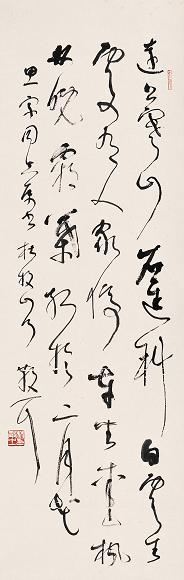 遠上寒山石逕斜白雲生
處有人家停車坐愛楓
林晚霜葉紅於二月花
思宗同志属書杜牧山行 散耳